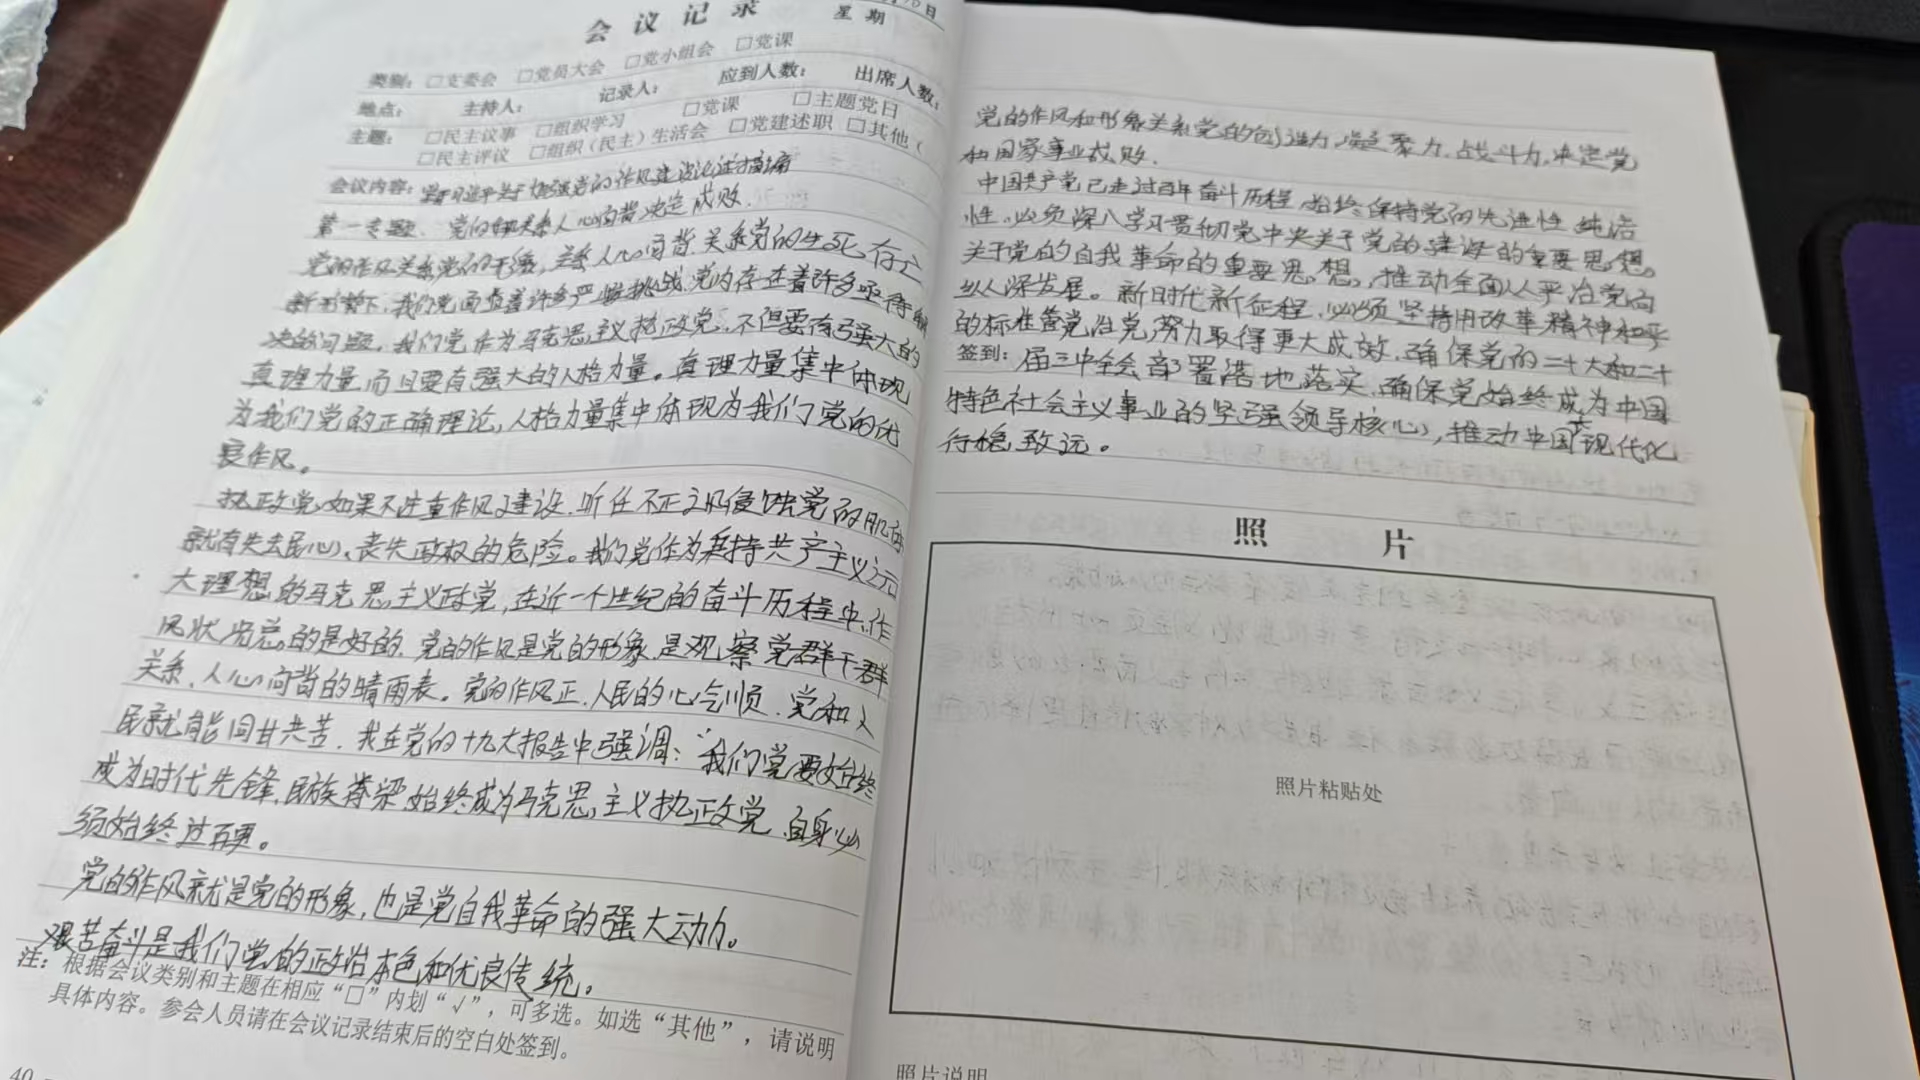 会议记录
日
星期
类别：□支委会 □党员大会 □党小组会 □党课
地点： 主持人： 记录人： 应到人数： 出席人数：
主题： □民主议事 □组织学习 □党课 □主题党日
□民主评议 □组织（民主）生活会 □党建述职 □其他（
会议内容： 习近平关于加强党的作风建设论述摘编
第一专题、党的作风关系人心向背决定成败.
党的作风关系党的形象，关系人心向背.关系党的生死存亡
新形势下，我们党面临着许多严峻挑战.党内存在着许多亟待解
决的问题。我们党作为马克思主义执政党，不但要有强大的
真理力量而且要有强大的人格力量。真理力量集中体现
为我们党的正确理论，人格力量集中体现为我们党的优
良作风。
执政党如果不注重作风建设.听任不正之风侵蚀党的肌体
就有失去民心、丧失政权的危险。我们党作为秉持共产主义远
大理想的马克思主义政党，在近一个世纪的奋斗历程中，作
风状况总的是好的.党的作风是党的形象.是观察党群干群
关系、人心向背的晴雨表。党的作风正.人民的心气顺.党和人
民就能同甘共苦.我在党的十九大报告中强调：“我们党要始终
成为时代先锋.民族脊梁.始终成为马克思主义执政党.自身必
须始终过硬。
党的作风就是党的形象，也是党自我革命的强大动力。
艰苦奋斗是我们党的政治本色和优良传统。
注：根据会议类别和主题在相应“□”内划“√”，可多选。如选“其他”，请说明
具体内容。参会人员请在会议记录结束后的空白处签到。
40
党的作风和形象关系党的创造力.凝聚力.战斗力.决定党
和国家事业成败.
中国共产党已走过百年奋斗历程.始终保持党的先进性 纯洁
性.必须深入学习贯彻党中央关于党的建设的重要思想。
关于党的自我革命的重要思想，推动全面从严治党向
纵深发展。新时代新征程.必须坚持用改革精神和严
的标准管党治党.努力取得更大成效.确保党的二十大和二十
签到：届三中全会部署落地落实.确保党始终成为中国
特色社会主义事业的坚强领导核心，推动中国式现代化
行稳致远。
照片
照片粘贴处
照片说明